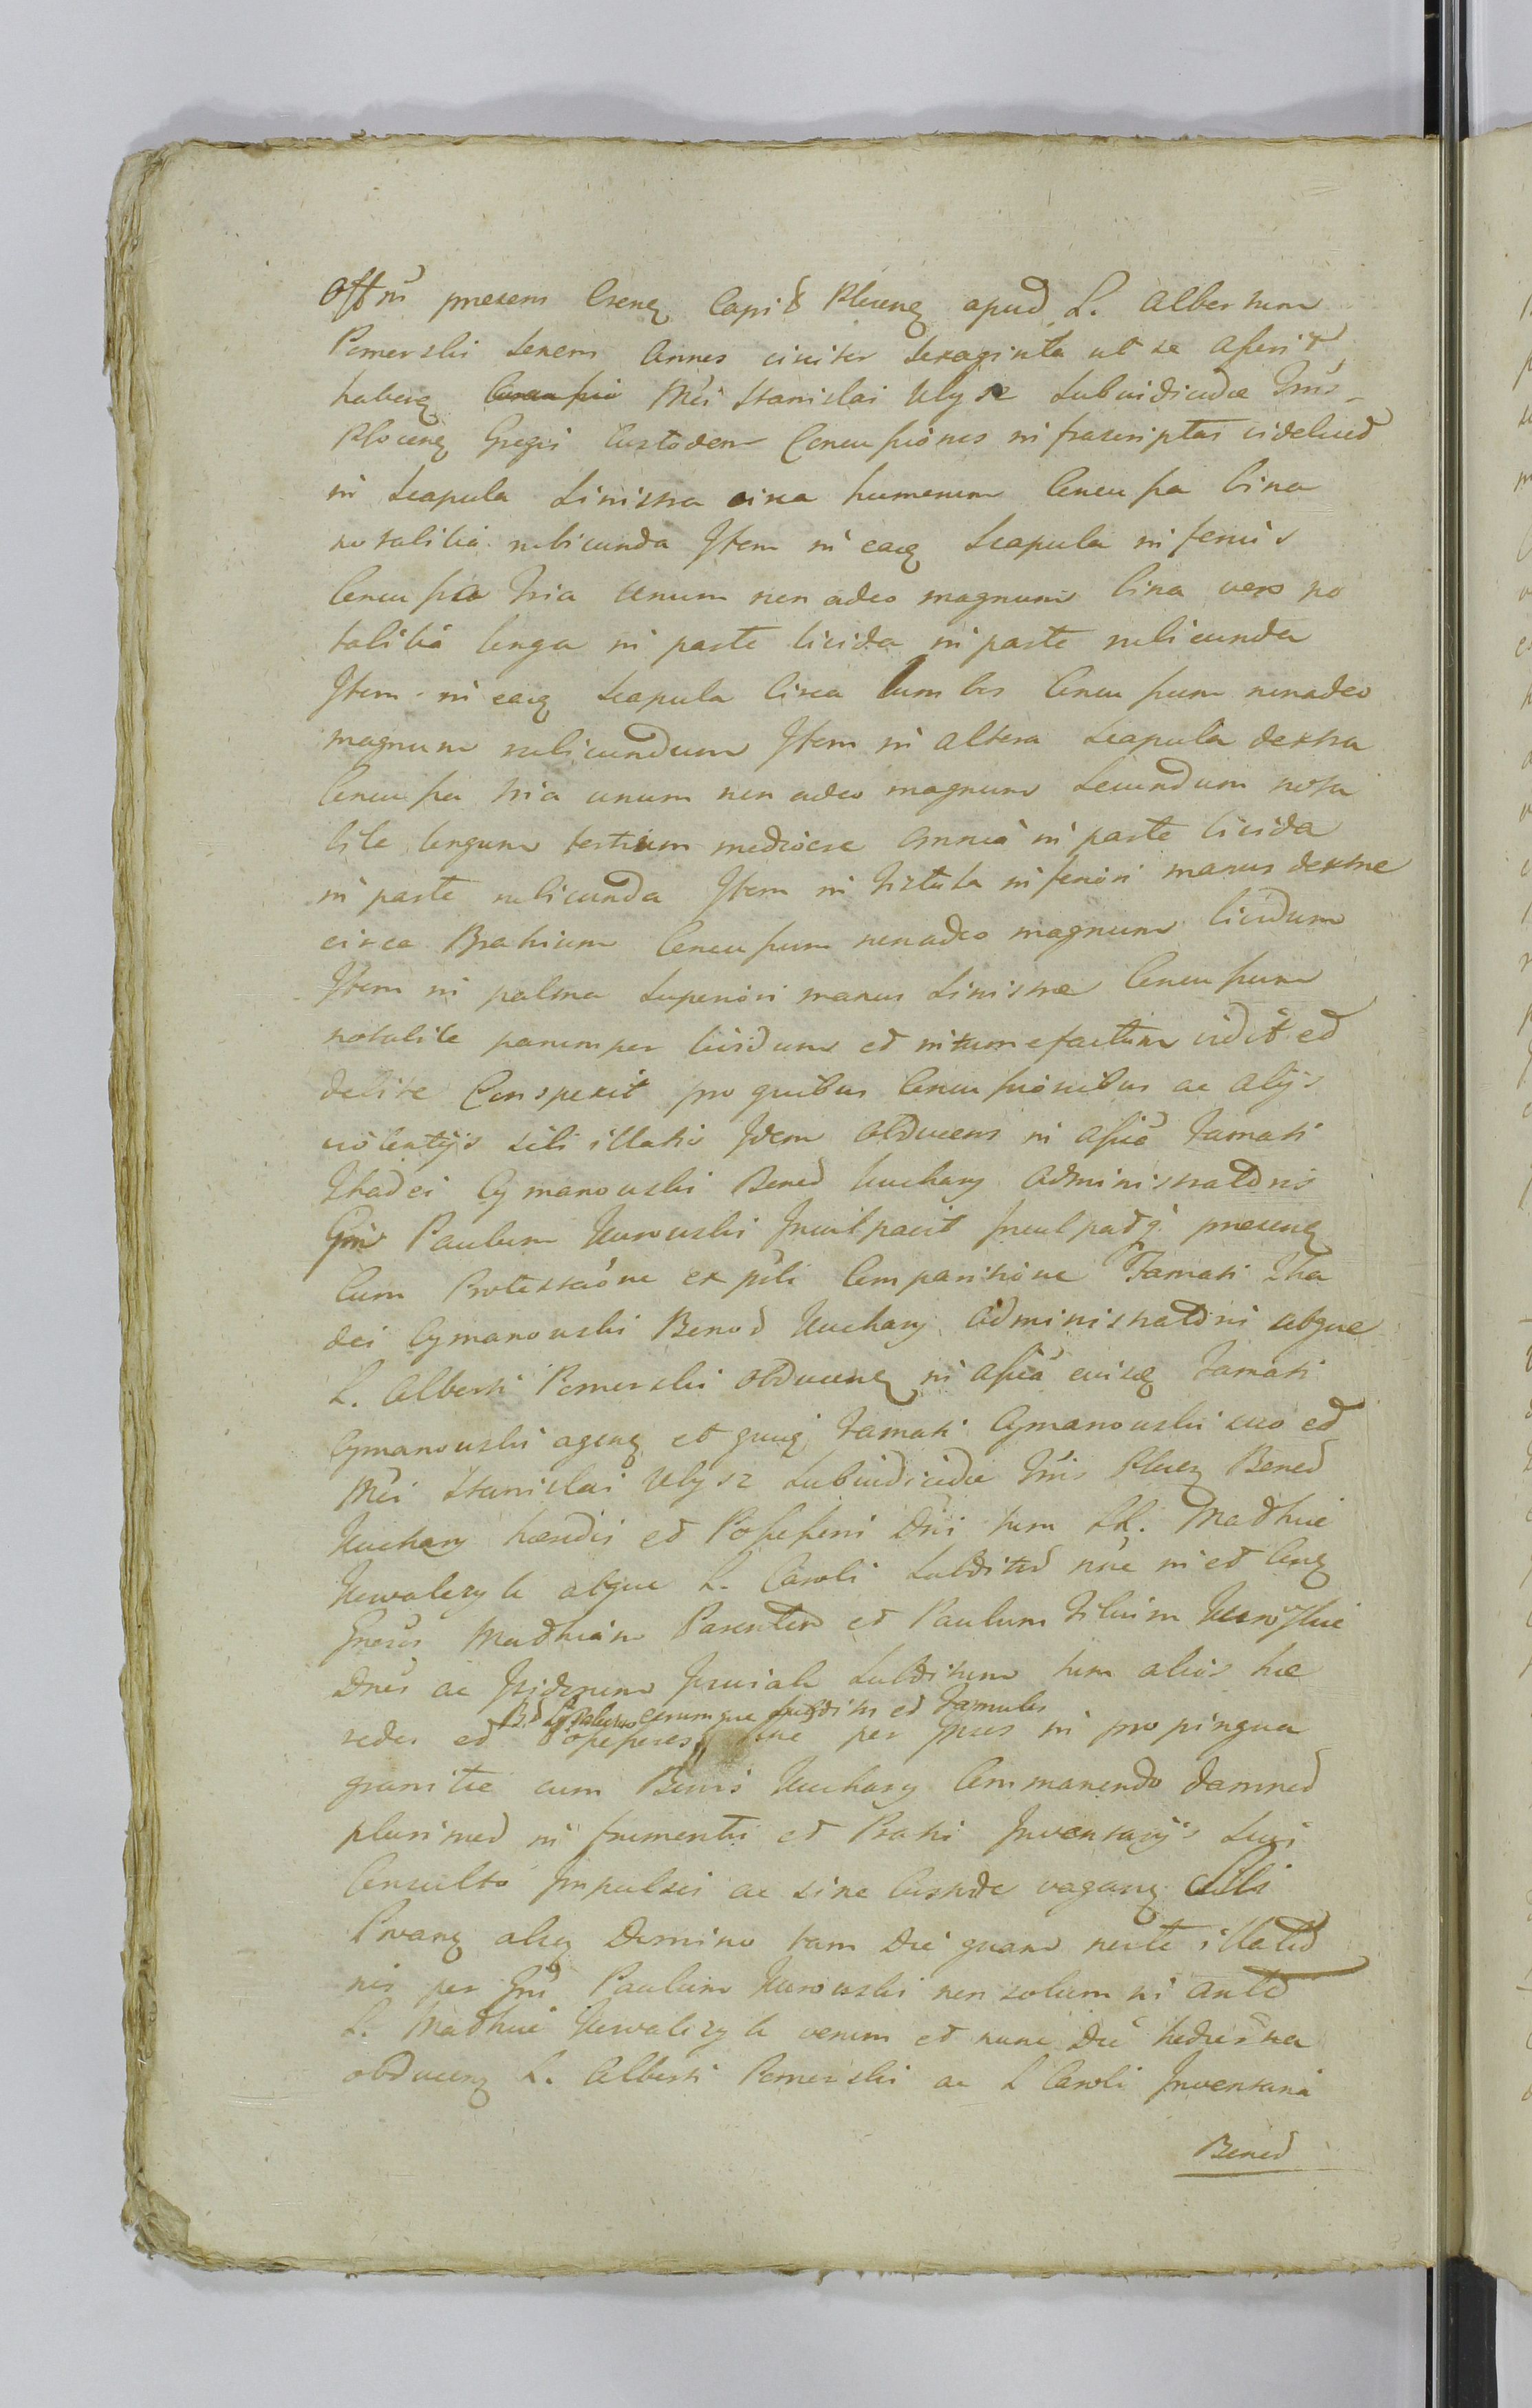 Offm presens Crenq Capit Plocenq apud L. Albertum
Pomerski senem Annos circiter sexaginta ut se asserit
habenq Mci Stanislai Ulysz Subiudicidae Trris
Plocenq Gregis Custodem Concussiones infrascriptas videlicet
in Scapula Sinistra circa humerum Concussa bina
notabilia rubicunda Item in eaq Scapula inferius
Concussa tria unum non adeo magnum bina vero no
tabilia longa in parte livida in parte rubicunda
Item in eaq Scapula circa lumbos Concussum nonadeo
magnum rubicundum Item in altera Scapula dextra
Concussa tria unum non adeo magnum Secundum nota
bile longum tertium mediocre omnia in parte livida
in parte rubicunda Item in fistula inferiori manus dextrae
circa Brahium Concussum nonadeo magnum lividum
Item in palma superiori manus Sinistrae Concussum
notabile parumper lividum et intumefactum vidit et
debite Conspexit pro quibus Concussionibus ac alijs
violentijs sibi illatis Idem Obducens in assica Famati
Thadei Cymanowski Bonod Kuchary Administratoris
Gm Paulum Kurowski Inculpavit Inculpadq presenq
Cum Protestaone ex psli Comparitione Famati Tha
dei Cymanowski Bonod Kuchary Administratoris atque
L. Alberti Pomerski Obducenq in assica eiusq Famati
Cymanowski agenq et quiq Famati Cymanowski suo et
Mci Stanislai Ulysz Subiudicidae Trris Plocq Bonod
Kuchary haeredis et Possessoris Dni tum LL. Mathiae
Kowalczyk atque L. Caroli Subditod nne in et Conq
Gnosos Mathiam Parentem et Paulum Filium Kurowskie
Dnos ac Isidorum subditum tum alios hae
B.d eorumque subditis et Famulis
redes et Possessores per Ipsos in propinqua
granitie cum Bonis Kuchary Commanendo damned
plurimed in frumentis et Pratis Inventarijs Suis
Consulto Impulsis ac sine Custode vaganq Sibi
Provanq alsq Domino tam Die quam nocte illated
nis per Gm Paulum Kurowski non solum in anted
L. Mathiae Kowalczyk verum et nunc Die hodierna
obducenq L. Alberti Pomerski ac L Caroli Inventaria
Bonod